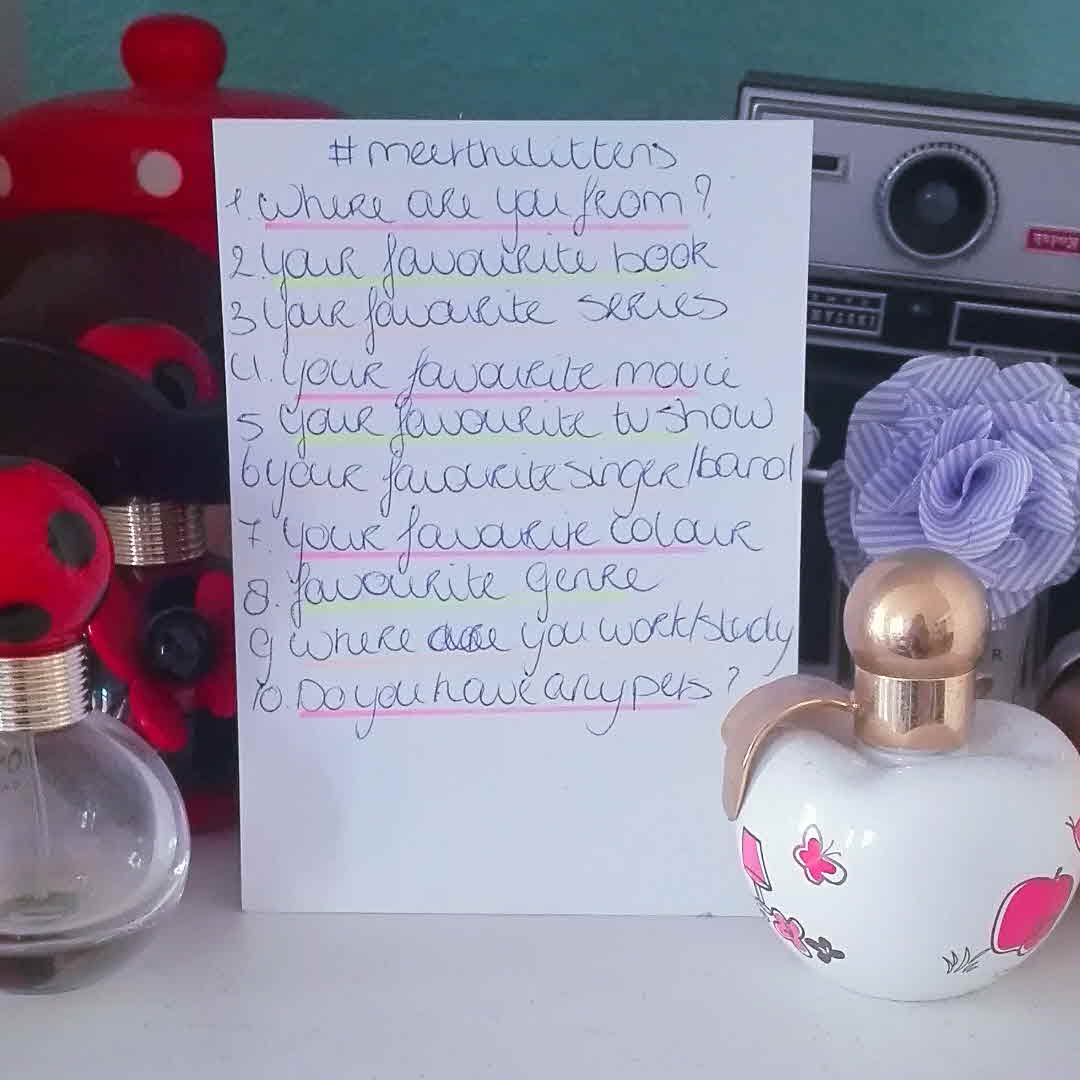 #meetthelittens
1. Where are you from?
2. Your favourite book
3 Your favourite series
4. Your favourite movie
5 Your favourite tv show
6 your favourite singer/band
7. Your favourite colour
8. favourite genre
9 Where are you work/study
10. Do you have any pets?
R